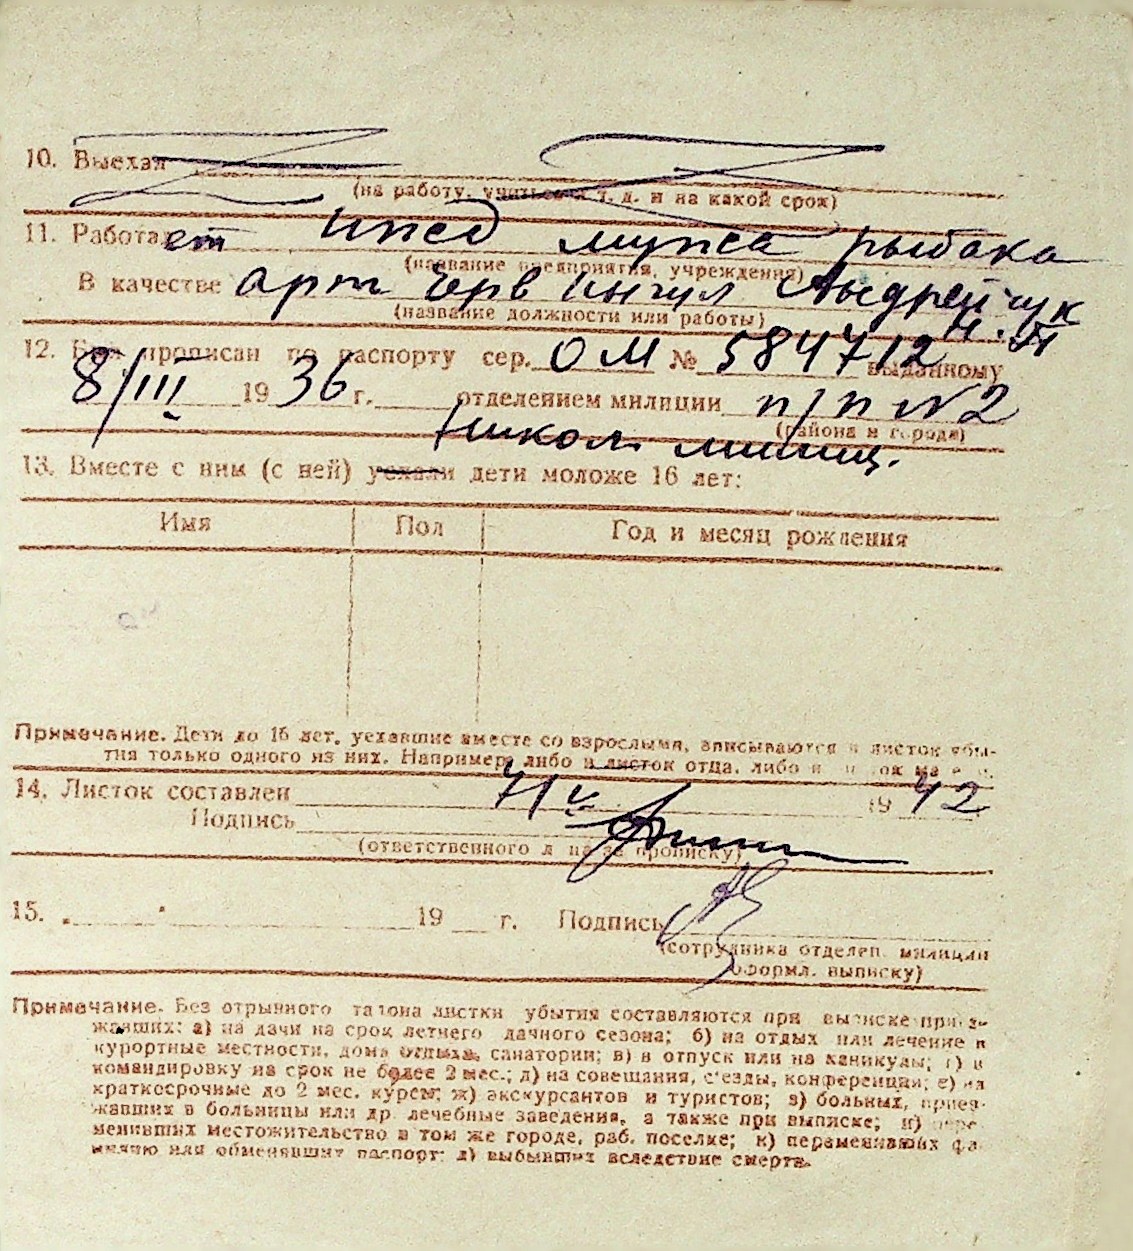 10. Выехал
(на работу, учиться и т. д. и на какой срок)
11. Работает ижд мужа рыбака
(название предприятия, учреждения)
В качестве арт Ингул Андрейчук
(название должности или работы)
12. Был прописан по паспорту сер. ОМ № 584712 выданному
8/III 1936 г. отделением милиции п/п №2
(района и города)
Никол. милиц.
13. Вместе с ним (с ней) уехали дети моложе 16 лет:
Имя Пол Год и месяц рождения
Примечание. Дети до 16 лет, уехавшие вместе со взрослыми, вписываются в листок убы-
тия только одного из них. Например, либо в листок отца, либо в листок матери.
14. Листок составлен 7/V 1942
Подпись
(ответственного л на за прописку)
15. " " 19 г. Подпись
(сотрудника отделен. милиции
оформл. выписку)
Примечание. Без отрывного талона листки убытия составляются при выписке приез-
жавших: а) на дачи на срок летнего дачного сезона; б) на отдых или лечение в
курортные местности, дома отдыха, санатории; в) в отпуск или на каникулы; г) в
командировку на срок не более 2 мес.; д) на совещания, с'езды, конференции; е) на
краткосрочные до 2 мес. курсы; ж) экскурсантов и туристов; з) больных, приез-
жавших в больницы или др. лечебные заведения, а также при выписке; и) пере-
менивших местожительство в том же городе, раб. поселке; к) переменивших фа-
милию или обменявших паспорт; л) выбывших вследствие смерти.